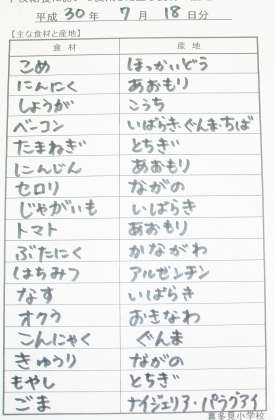 平成 30 年 7 月 18 日分
【主な食材と産地】
食材 産地
こめ ほっかいどう
にんにく あおもり
しょうが こうち
ベーコン いばらき・ぐんま・ちば
たまねぎ とちぎ
にんじん あおもり
セロリ ながの
じゃがいも いばらき
トマト あおもり
ぶたにく かながわ
はちみつ アルゼンチン
なす いばらき
オクラ おきなわ
こんにゃく ぐんま
きゅうり ながの
もやし とちぎ
ごま ナイジェリア・パラグアイ
喜多見小学校